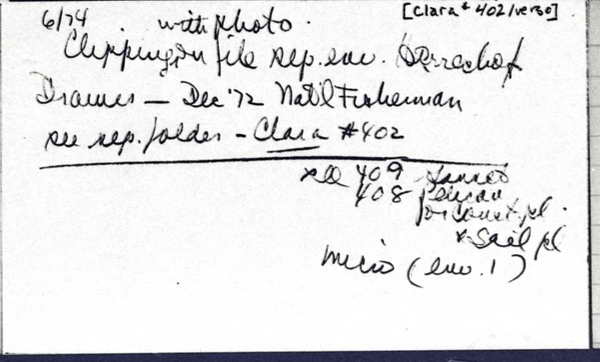 [Clara # 402/verso]
6/74 with photo.
Clipping in file sep. env.
Drawer — Dec '72 Nat'l Fisherman
see sep. folder – Clara #402
see 409
408 pelican
for const. pl.
x Sail pl
micro (env. 1)